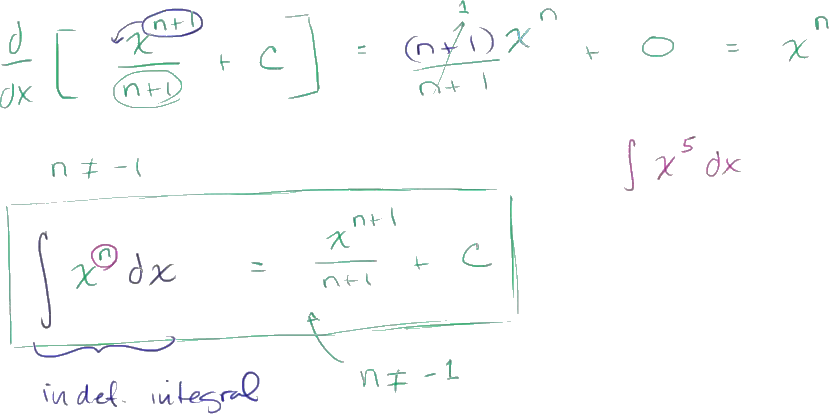 d/dx [ x^(n+1)/(n+1) + C ] = (n+1) x^n / (n+1) + 0 = x^n
1
n ≠ -1
∫ x^5 dx
∫ x^n dx = x^(n+1)/(n+1) + C
n ≠ -1
indef. integral